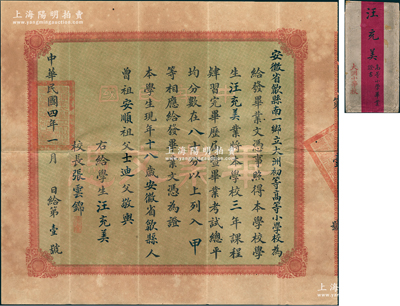 上海陽明拍賣
安徽省歙縣南一鄉立大洲初等高等小學校為
給發畢業文憑事照得本學校學
生汪克美業將本學校三年課程
肄習完畢歷
畢業考試總平
均分數在八
分以上列入甲
等相應給發畢業文憑為證
本學生現年十八歲安徽省歙縣人
曾祖安順祖父士迪父敬興
右給學生汪克美
校長張雲錦
中華民國四年一月 日給第壹號
汪克美